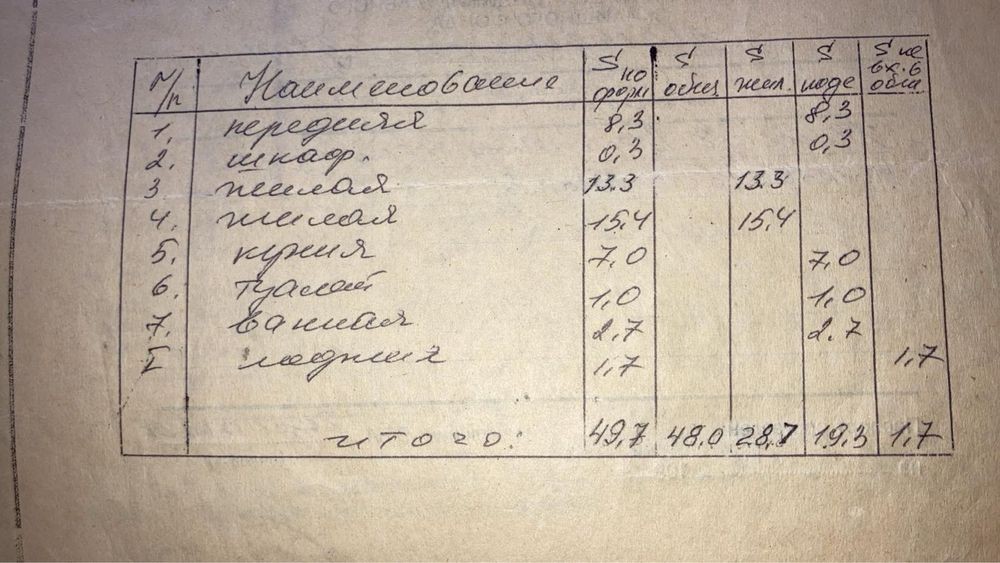 п/п Наименование S по форм S общ S жил. S подс S не вх. в общ
1. передняя 8,3 8,3
2. шкаф. 0,3 0,3
3 жилая 13.3 13.3
4. жилая 15,4 15,4
5. кухня 7,0 7,0
6. туалет 1,0 1,0
7. ванная 2,7 2.7
I лоджия 1,7 1,7
итого: 49,7 48.0 28,7 19.3 1,7